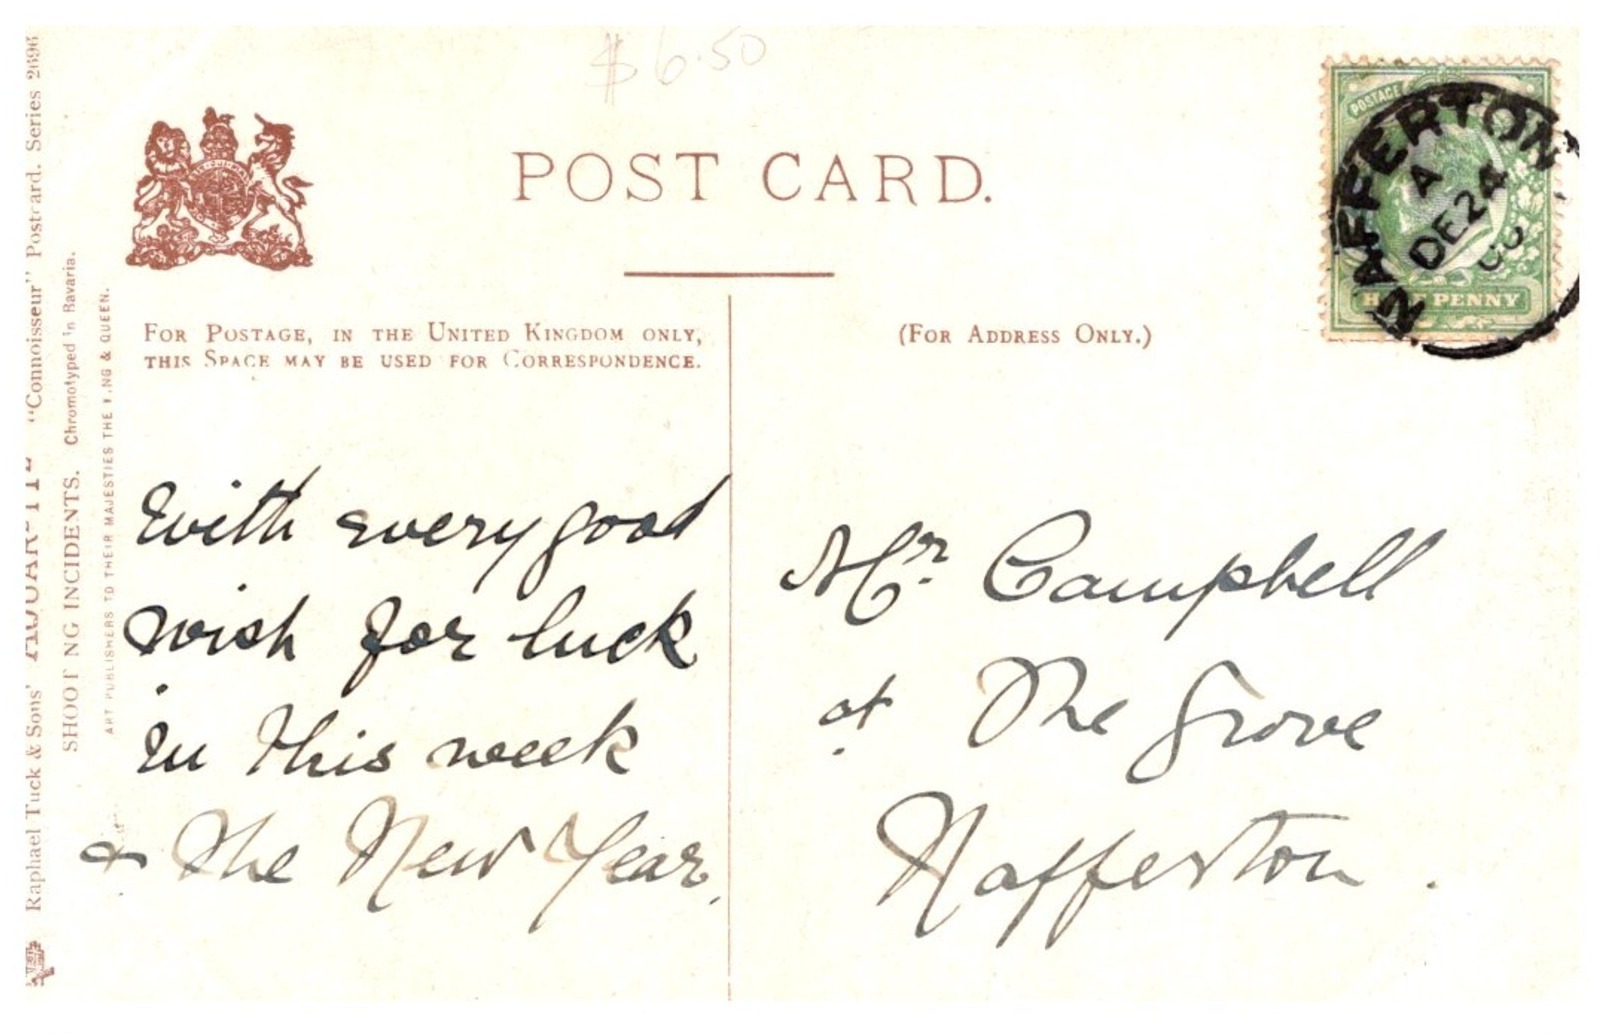 $6.50
POST CARD.
FOR POSTAGE, IN THE UNITED KINGDOM ONLY,
THIS SPACE MAY BE USED FOR CORRESPONDENCE.
(FOR ADDRESS ONLY.)
POSTAGE
NAFFERTON
A
DE 24
HALF PENNY
With every good
wish for luck
in this week
& The New Year.
Mr. Campbell
at The Grove
Nafferton.
Raphael Tuck & Sons' "Connoisseur" Postcard. Series 2696
SHOOTING INCIDENTS. Chromotyped in Bavaria.
ART PUBLISHERS TO THEIR MAJESTIES THE KING & QUEEN.